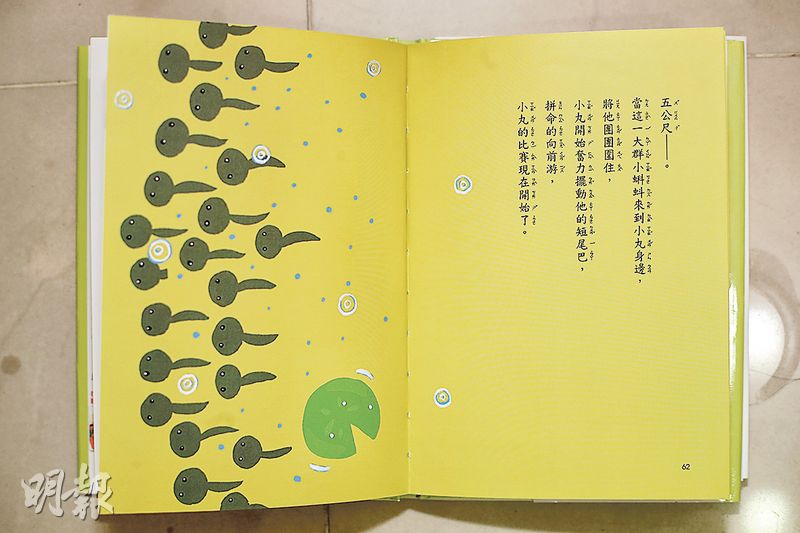 五公尺——。
當這一大群小蝌蚪來到小丸身邊，
將他團團圍住，
小丸開始奮力擺動他的短尾巴，
拼命的向前游，
小丸的比賽現在開始了。
62
明報